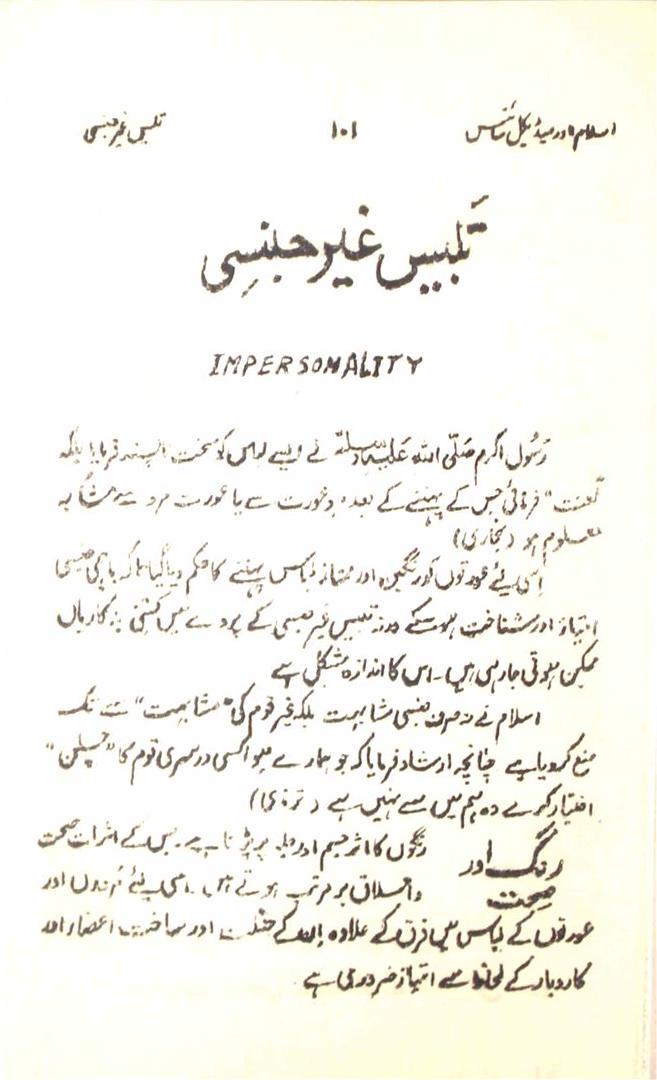 اسلام اور میڈیکل سائنس ۱۰۱ تلبیس غیر جنسی
تَلبیس غیر جنسِی
IMPERSONALITY
رسُول اکرم صَلّی اللہ عَلَیہ وسلّم نے ایسے لباس کو سخت ناپسند فرمایا بلکہ
لعنت" فرمائی جس کے پہننے کے بعد مرد عورت سے یا عورت مرد سے مشابہ
معلوم ہو (بخاری)
اِسی لئے عورتوں کو رنگین اور ممتاز لباس پہننے کا حکم دیا گیا تاکہ باہمی جنسی
امتیاز اور شناخت ہو سکے ورنہ تلبیس غیر جنسی کے پردے میں کتنی بدکاریاں
ممکن ہوتی جا رہی ہیں۔ اس کا اندازہ مشکل ہے
اسلام نے نہ صرف جنسی مشابہت بلکہ غیر قوم کی "مشابہت" سے تک
منع کر دیا ہے چنانچہ ارشاد فرمایا کہ جو ہمارے سوا کسی دوسری قوم کا "
اختیار کرے وہ ہم میں سے نہیں ہے (ترمذی)
رنگ اور صحت
رنگوں کا اثر جسم اور جلد پر پڑتا ہے۔ جس کے اثرات صحت
و اخلاق پر مرتب ہوتے ہیں۔ اسی لئے مَردوں اور
عورتوں کے لباس میں فرق کے علاوہ ان کے اور ساخت اعضاء اور
کاروبار کے لحاظ سے امتیاز ضروری ہے